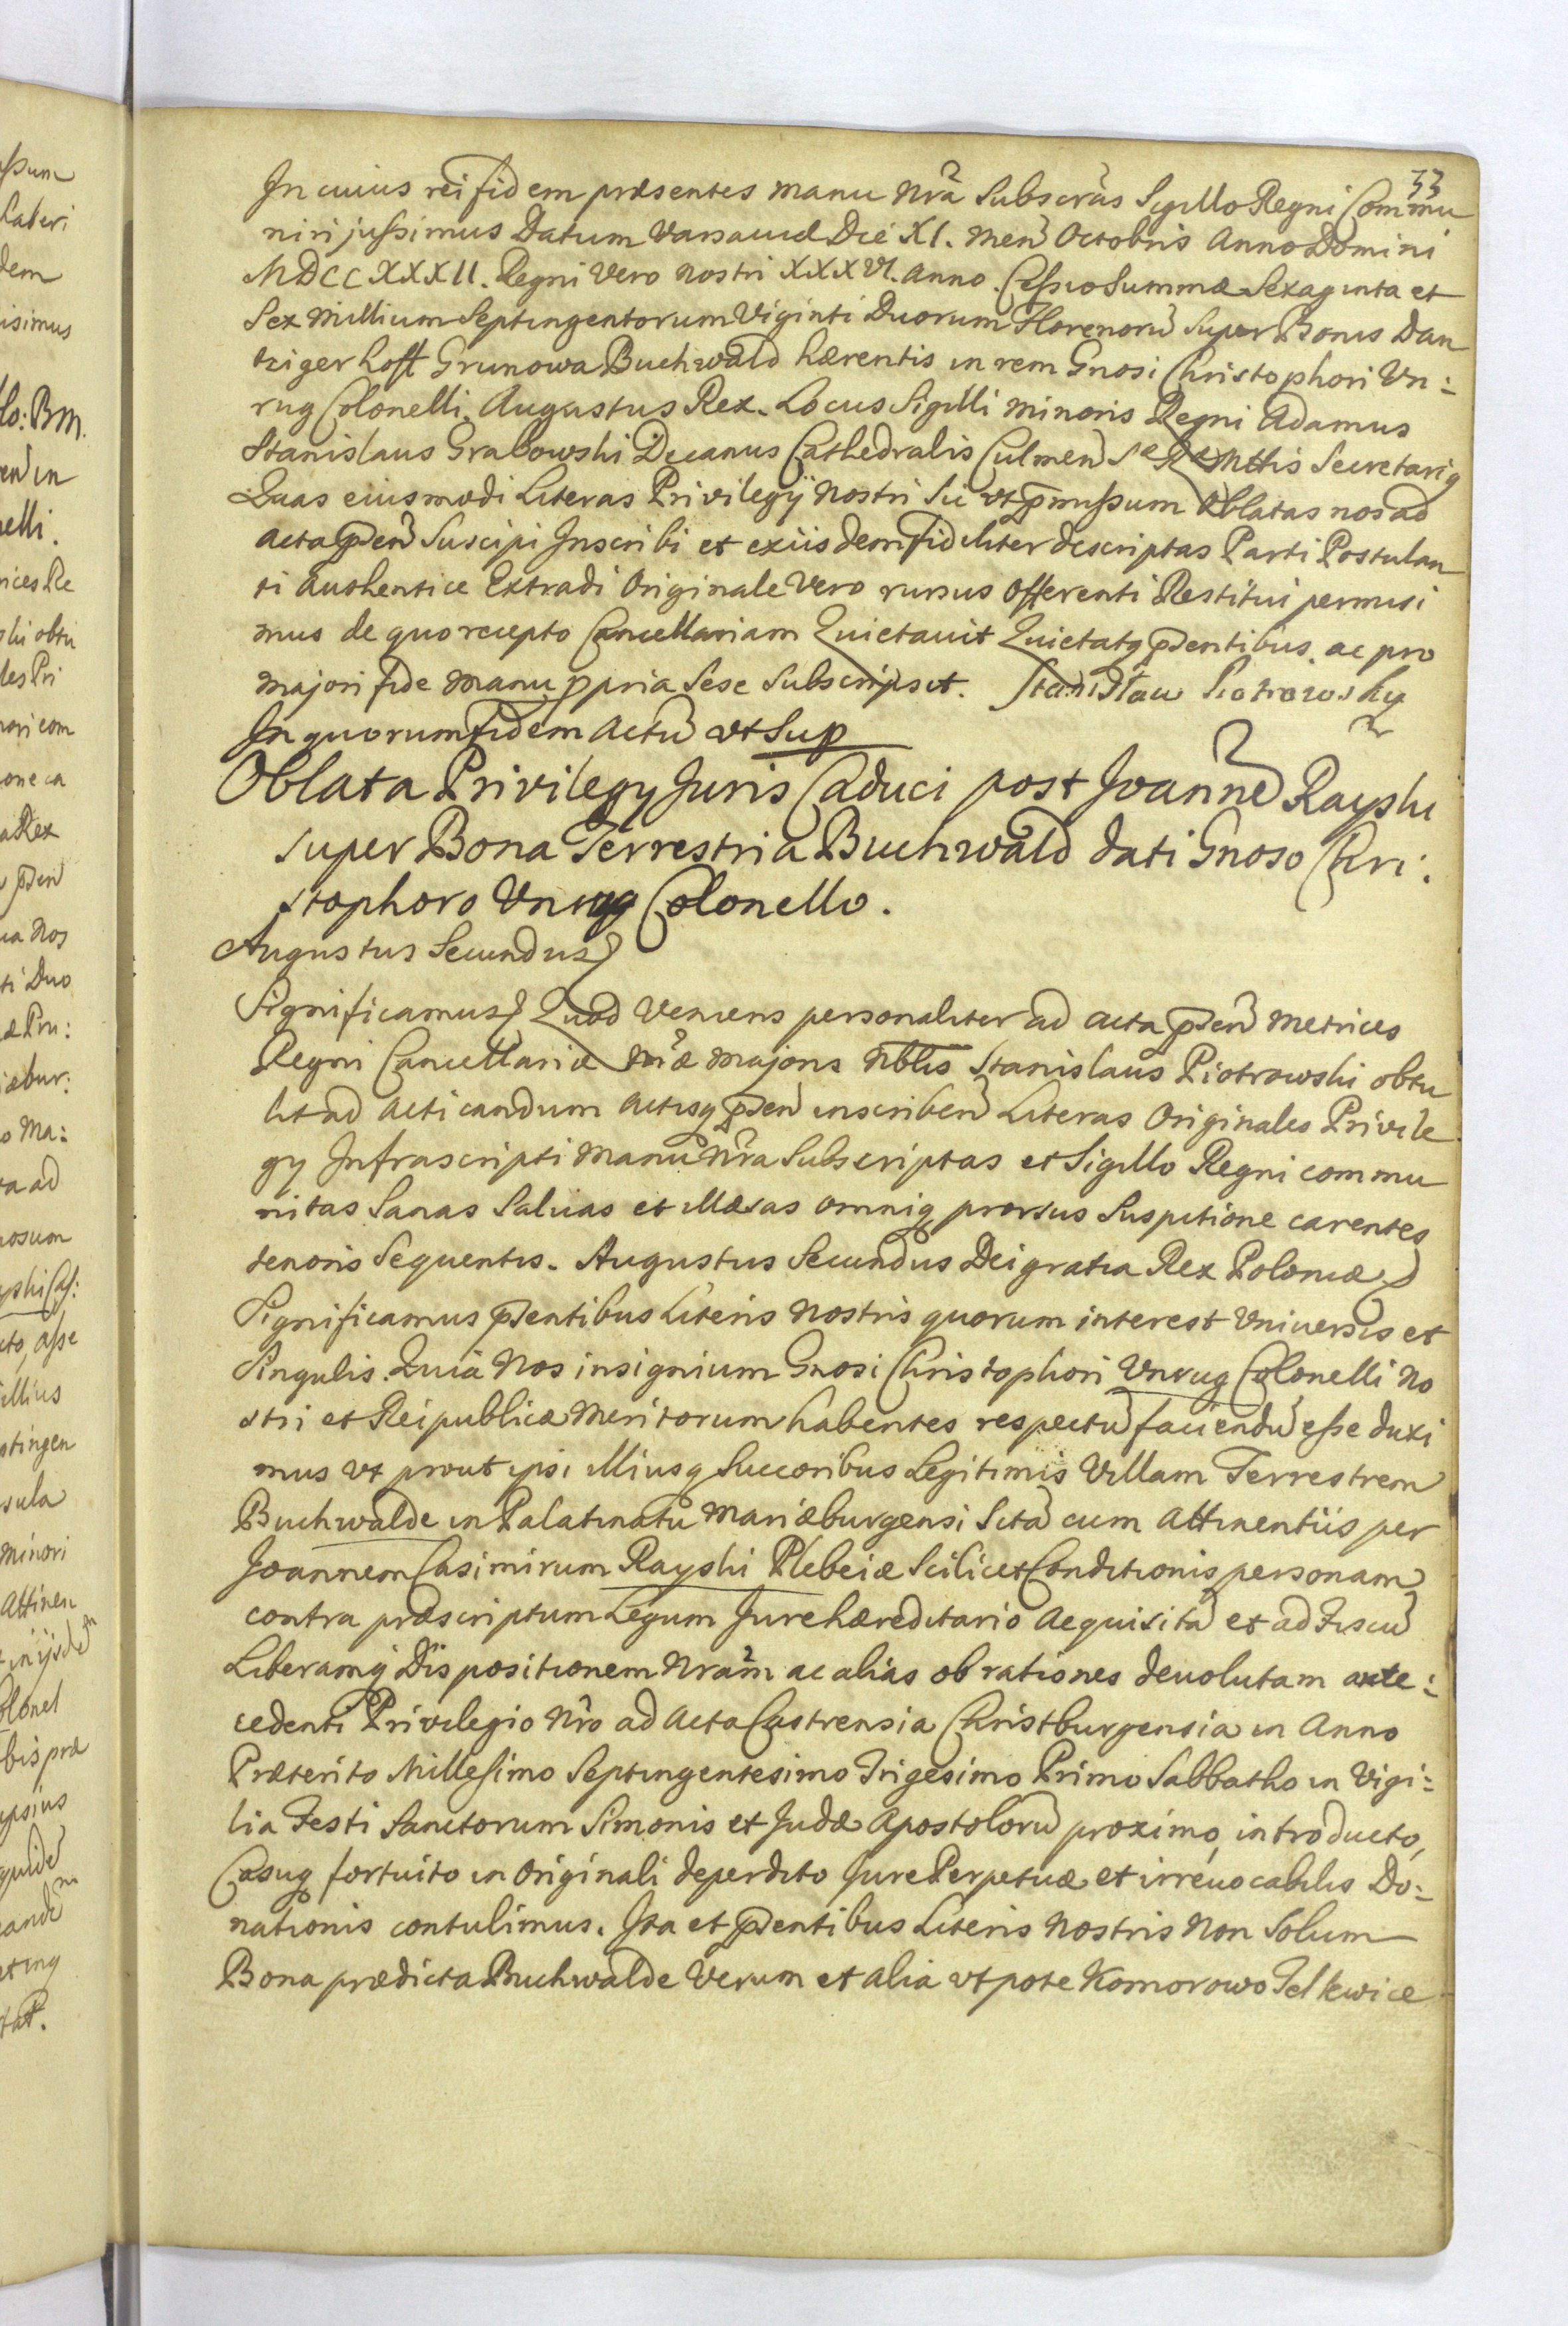 33
In cuius rei fidem præsentes manu nrã Subscrãs Sigillo Regni Commu
niri jussimus Datum Varsaviæ Die XI. Men̄ Octobris Anno Domini
MDCCXXXII. Regni Vero nostri XXXVI. Anno. Cessio Summæ Sexaginta et
Sex Millium Septingentorum Viginti Duorum Florenorū Super Bonis Dan
tziger hofft Grunowa Buchwald hærentis in rem Gnosi Christophori Vn:
rug Colonelli. Augustus Rex. Locus Sigilli minoris Regni Adamus
Stanislaus Grabowski Decanus Cathedralis Culmen̄ Sæ Ræ Mttis Secretariq
Quas eiusmodi Literas Privilegij nostri Sic vt p̄missum Oblatas nos ad
acta p̄sen̄ Suscipi Inscribi et exiisdem fideliter descriptas Parti Postulan
ti Authentice Extradi Originale Vero rursus Offerenti Restitui permisi
mus de quo recepto Cancellariam Quietavit Quietatq p̄sentibus. ac pro
majori fide manu ppria Sese Subscripsit. Stanisław Piotrowsky
In quorum fidem Actū vt Sup
Oblata Privilegy Juris Caduci post Joannē Rayski
super Bona Terrestria Buchwald dati Gnoso Chri:
stophoro Vnrug Colonello.
Augustus Secundus
Significamus Quod Veniens personaliter ad acta p̄sen̄ Metrices
Regni Cancellariæ nræ majoris Nblis Stanislaus Piotrowski obtu
lit ad Acticandum Actisq p̄sen̄ inscriben̄ Literas Originales Privile
gy Infrascripti Manu Nrã Subscriptas et Sigillo Regni commu
nitas Sanas Salvas et illæsas omniq prorsus Suspitione carentes
tenoris Sequentis. Augustus Secundus Dei gratia Rex Poloniæ
Significamus p̄sentibus Literis Nostris quorum interest Vniversis et
Singulis. Quia Nos insignium Gnosi Christophori Vnrug Colonelli No
stri et Reipublicæ Meritorum habentes respectū faciendū esse duxi
mus vt prout ipsi illiusq Succoribus Legitimis Villam Terrestrem
Buchwalde in Palatinatu Mariæburgensi Sitā cum Attinentiis per
Joannem Casimirum Rayski Plebeiæ Scilicet Conditionis personam
contra præscriptum Legum Jure hæreditario Aequisitā et ad Fiscū
Liberamq Dispositionem Nram̃ ac alias ob rationes devolutam ante:
cedenti Privilegio Nrõ ad Acta Castrensia Christburgensia in Anno
Præterito Millesimo Septingentesimo Trigesimo Primo Sabbatho in Vigi:
lia Festi Sanctorum Simonis et Judæ Apostolorū proximo, introducto,
Casuq fortuito in Originali deperdito Jure Perpetuæ et irrevocabilis Do:
nationis contulimus. Ita et p̄sentibus Literis Nostris Non Solum
Bona prædicta Buchwalde Verum et alia vtpote Komorowo Telkwice